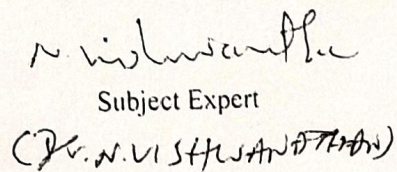 N. Vishwanatha
Subject Expert
(Dr. N. VISHWANATHAN)